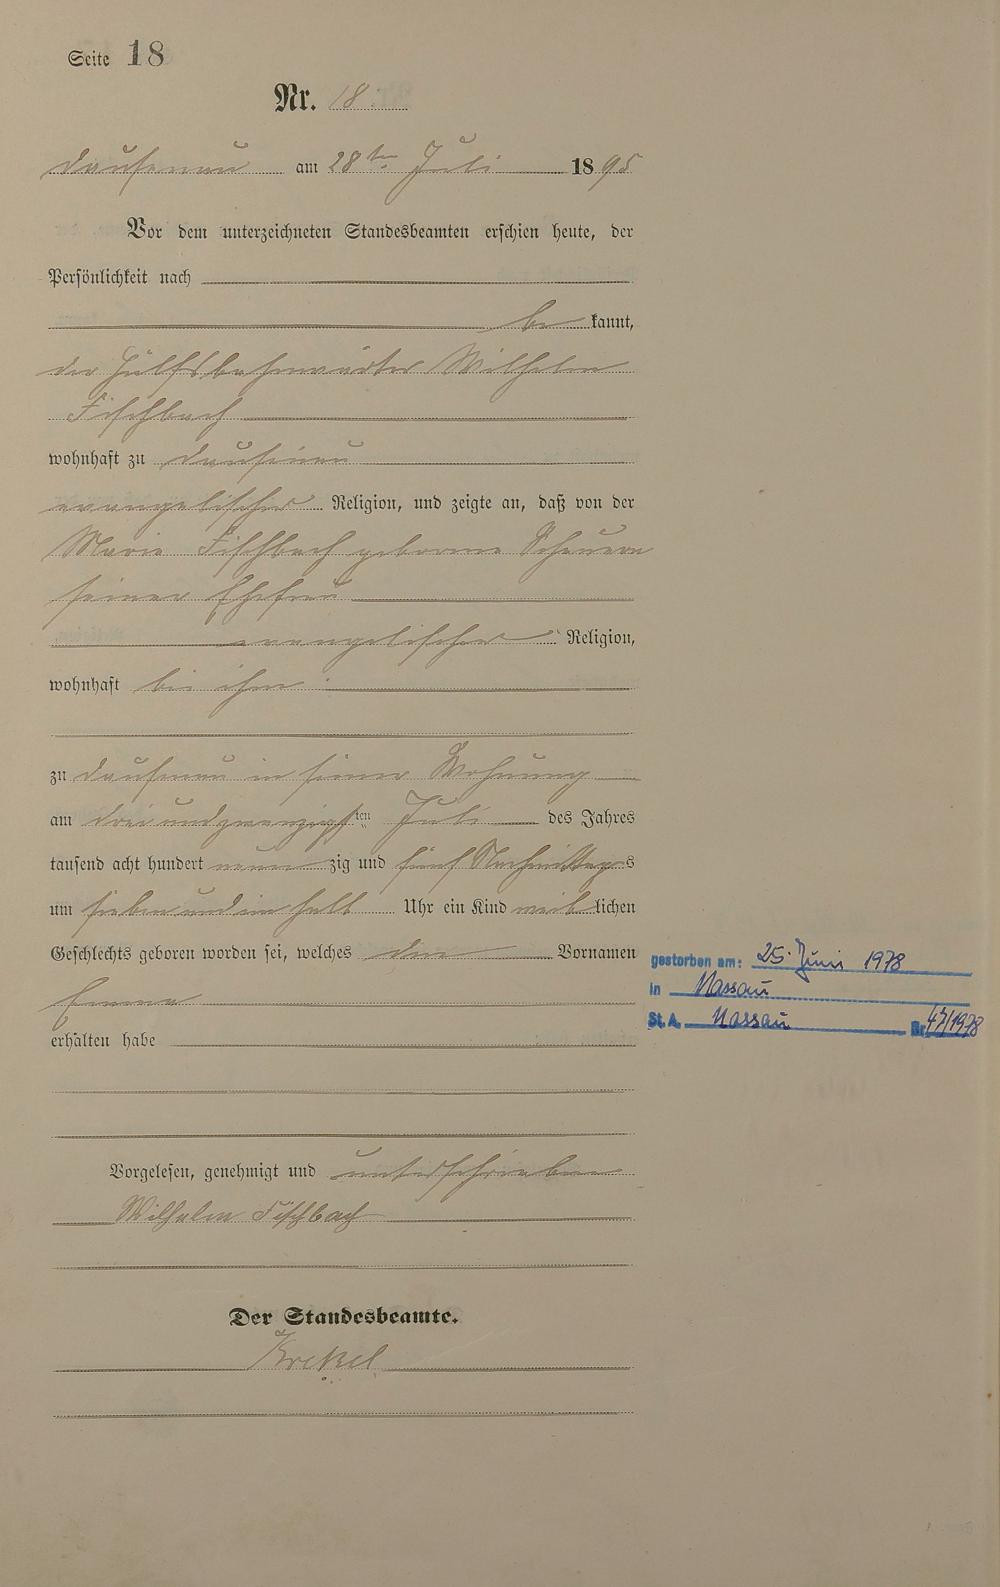 Seite 18
Nr. 18.
Dausenau am 28ten Juli 1895
Vor dem unterzeichneten Standesbeamten erschien heute, der
Persönlichkeit nach
bekannt,
der Hülfsbahnwärter Wilhelm
Fischbach
wohnhaft zu Dausenau
evangelischer Religion, und zeigte an, daß von der
Marie Fischbach geborene Scheuern
seiner Ehefrau
evangelischer Religion,
wohnhaft bei ihm
zu Dausenau in seiner Wohnung
am drei und zwanzigsten Juli des Jahres
tausend acht hundert neunzig und fünf Nachmittags
um sieben und ein halb Uhr ein Kind weiblichen
Geschlechts geboren worden sei, welches den Vornamen
gestorben am: 25. Juni 1978
in Nassau
Emma
St. A. Nassau Nr. 47/1978
erhalten habe
Vorgelesen, genehmigt und unterschrieben
Wilhelm Fischbach
Der Standesbeamte.
Krekel